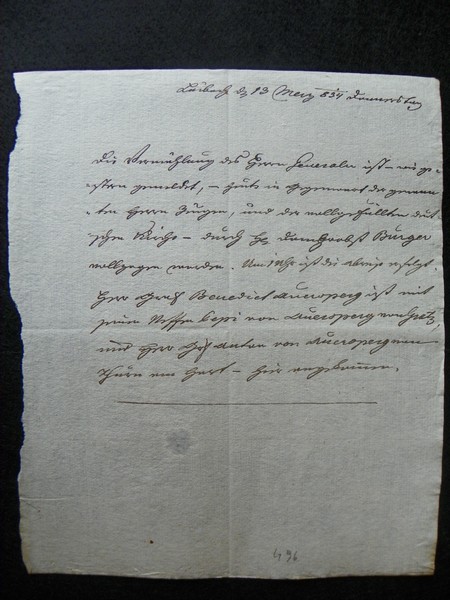 Laibach d. 13 Merz 834 Donnerstag
Die Vermählung des Herrn Generalen ist – wie ge-
stern gemeldet, – heute in Gegenwart der genann-
ten Herrn Zeugen, und der vollgefüllten deut-
schen Kirche – durch H. Domprobst Burger
vollzogen worden. Um 1 Uhr ist die Abreise erfolgt.
Herr Graf Benedict Auersperg ist mit
seinem Neffen von Auersperg von Gratz,
und Herr Graf Anton von Auersperg von
Thurn am Hart – hier angekommen.
496